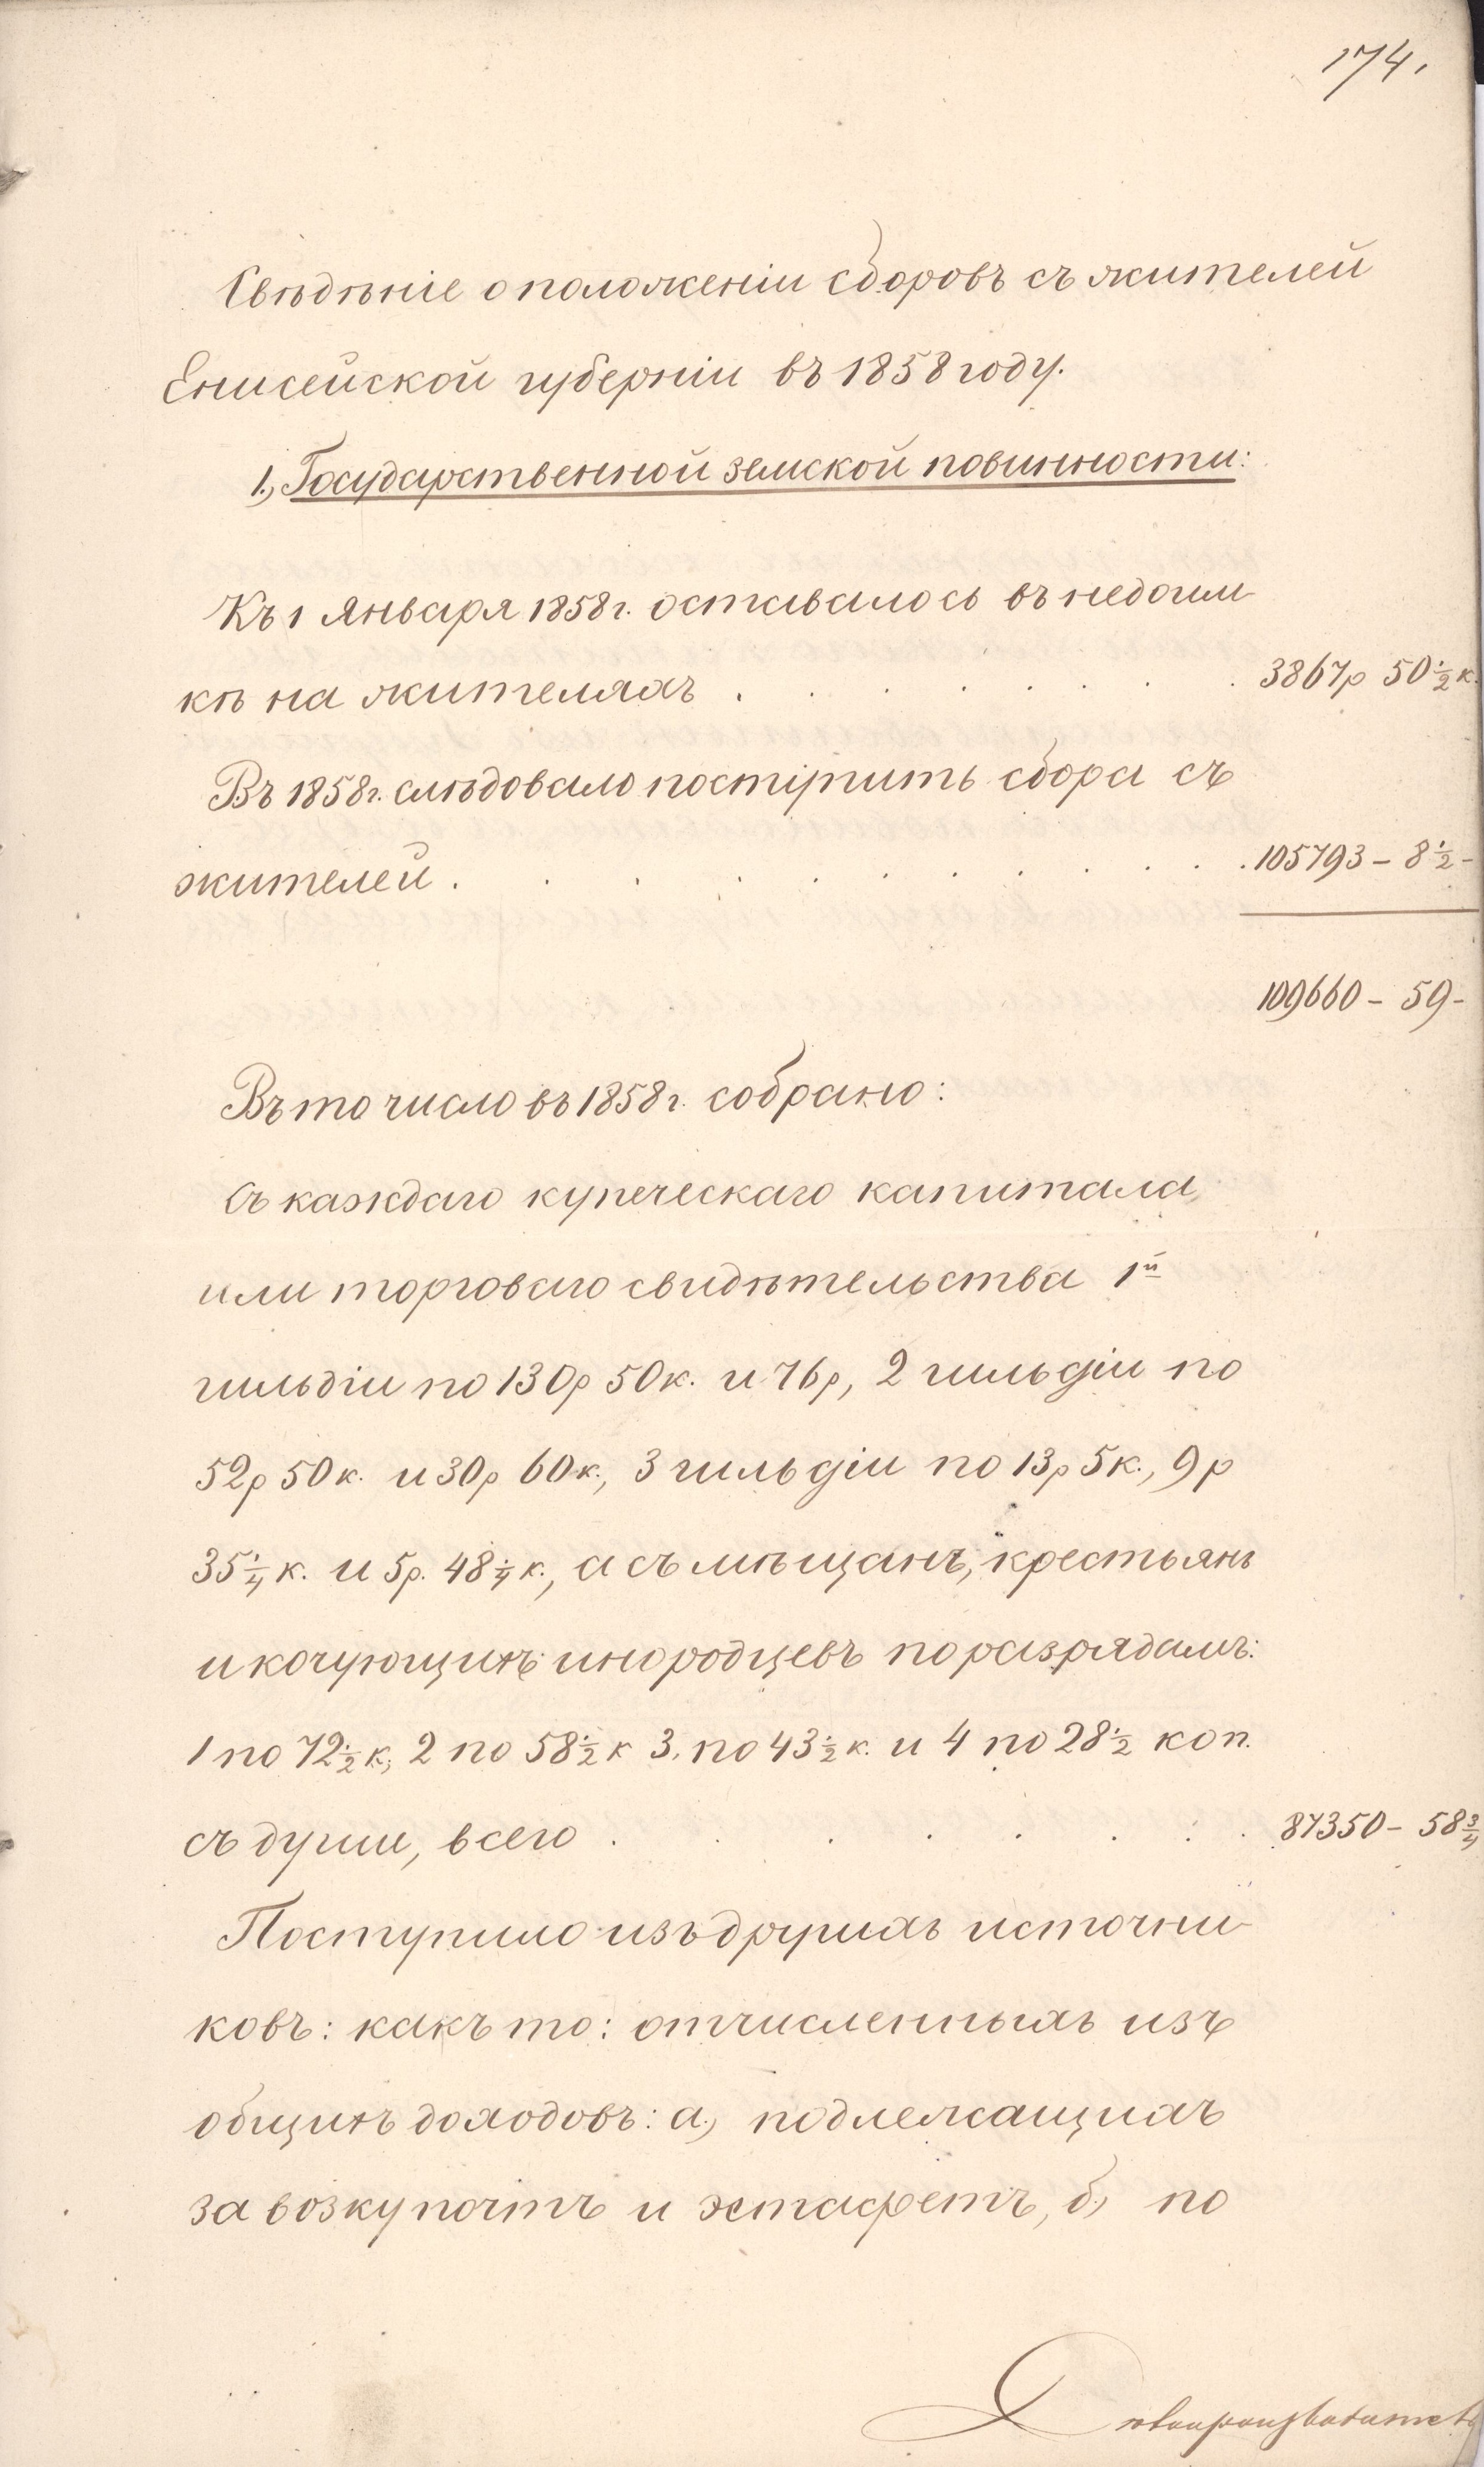 174.
Свѣдѣніе о положеніи сборовъ съ жителей
Енисейской губерніи въ 1858 году.
1., Государственной земской повинности:
Къ 1 Января 1858 г. оставалось въ недоим-
кѣ на жителяхъ . . . . . . . . 3867р 50 1/2 к.
Въ 1858 г. слѣдовало поступить сбора съ
жителей . . . . . . . . . . . 105793 – 8 1/2 –
109660 – 59 –
Въ то число въ 1858 г. собрано:
Съ каждаго купеческаго капитала
или торговаго свидѣтельства 1й
гильдіи по 130р 50к. и 76р, 2 гильдіи по
52р 50к. и 30р 60к., 3 гильдіи по 13р 5к., 9р
35 1/4 к. и 5р. 48 1/4 к., а съ мѣщанъ, крестьянъ
и кочующихъ инородцевъ по разрядамъ:
1 по 72 1/2 к., 2 по 58 1/2 к 3. по 43 1/2 к. и 4 по 28 1/2 коп.
съ души, всего . . . . . . . . 87350 – 58 3/4
Поступило изъ другихъ источни-
ковъ: какъ то: отчисленныхъ изъ
общихъ доходовъ: а., подлежащихъ
за возку почтъ и эстафетъ, б., по
Дѣлопроизводитель